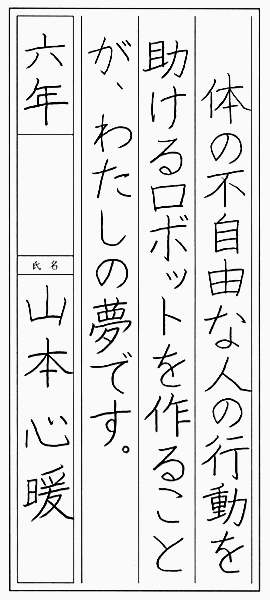 体の不自由な人の行動を
助けるロボットを作ること
が、わたしの夢です。
六年
氏名
山本心暖